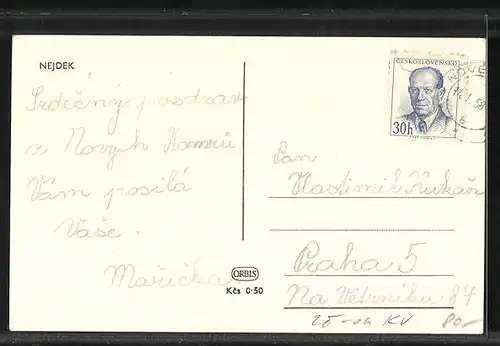 NEJDEK
Srdečný pozdrav
z Nových Hamrů
Vám posílá
Vaše
Mařička
ORBIS
Kčs 0·50
ČESKOSLOVENSKO
30h
NOVÉ
Pan
Vlastimil
Praha 5
Na Větrníku 87
80-